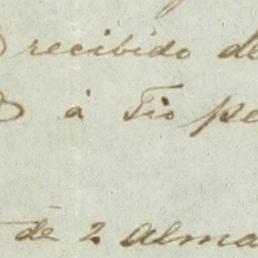 recibido de
á Tio pe
de 2 alma